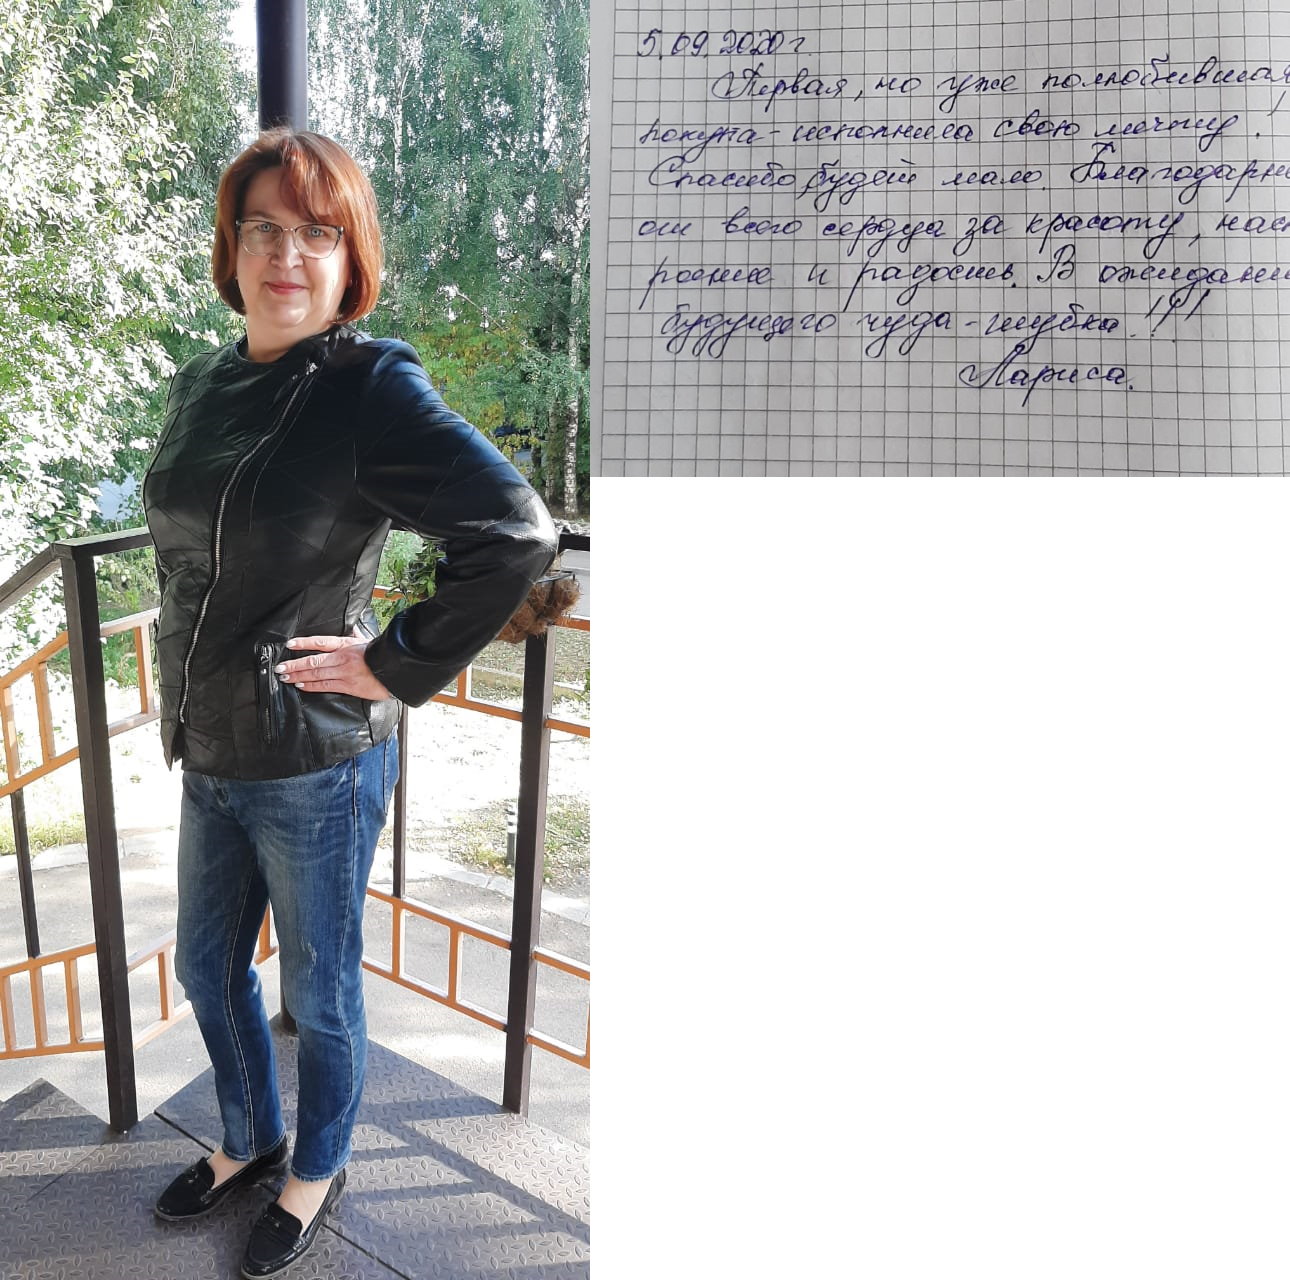 5.09.2020 г.
Первая, но уже полюбившаяся
покупка - исполнила свою мечту!
Спасибо, будет мало. Благодарю
от всего сердца за красоту, наст
роение и радость. В ожидании
будущего чуда - шубка!!!
Лариса.